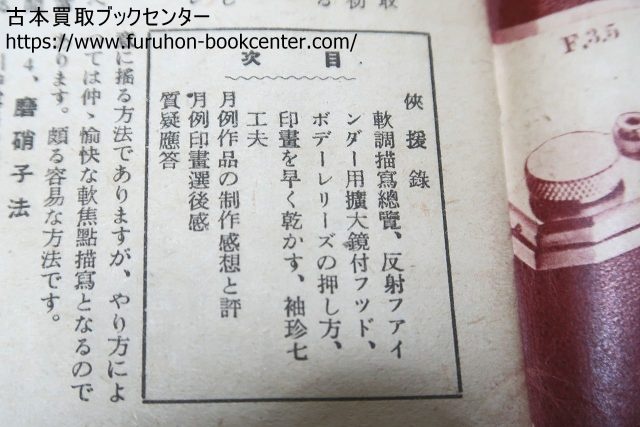 古本買取ブックセンター
https://www.furuhon-bookcenter.com/
F.3.5
目次
俠援錄
軟調描寫總覽、反射ファイ
ンダー用擴大鏡付フッド、
ボデーレリーズの押し方、
印畫を早く乾かす、袖珍七
工夫
月例作品の制作感想と評
月例印畫選後感
質疑應答
に搖る方法でありますが、やり方によ
ては仲々愉快な軟焦點描寫となるので
ります。頗る容易な方法です。
4、磨硝子法